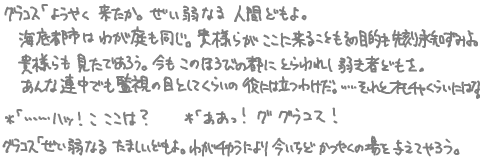 グラコス「ようやく 来たか。ぜい弱なる 人間どもよ。
海底都市は わが庭も同じ。貴様らが ここに来ることも その目的も 先刻承知ずみよ。
貴様らも 見たであろう。今も このほろびの都に とらわれし 弱き者どもを。
あんな連中でも 監視の目としてくらいの 役には立つわけだ。……それとオモチャくらいには
*「……ハッ！ こ ここは？ *「ああっ！ グ グラコス！
グラコス「ぜい弱なる たましいどもよ。わがチカラにより 今いちど かつやくの場を 与えてやろう。